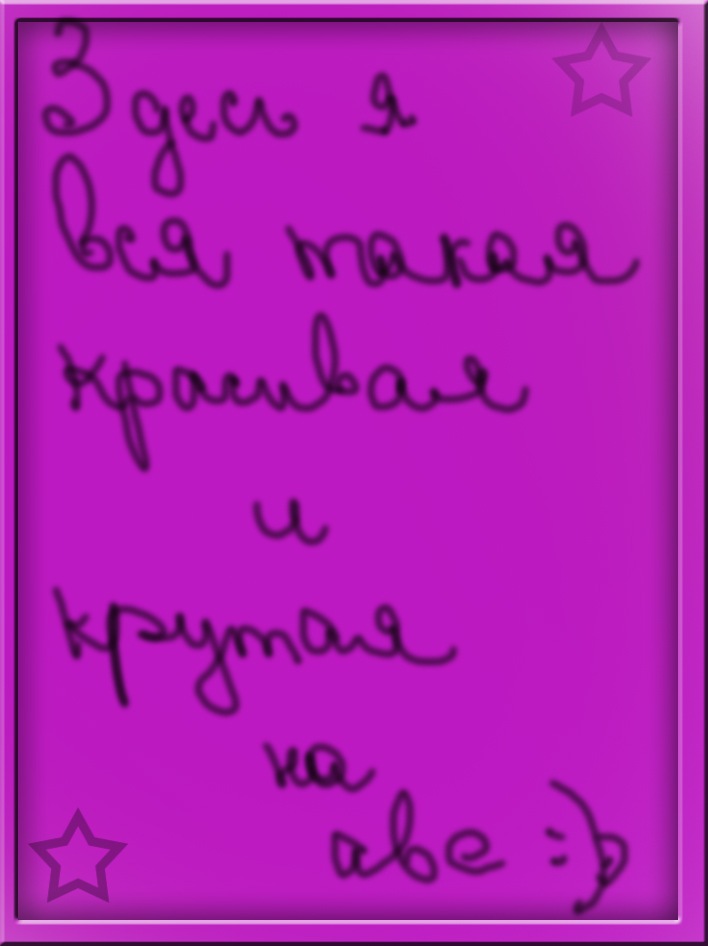 Здесь я
вся такая
красивая
и
крутая
на
аве :)